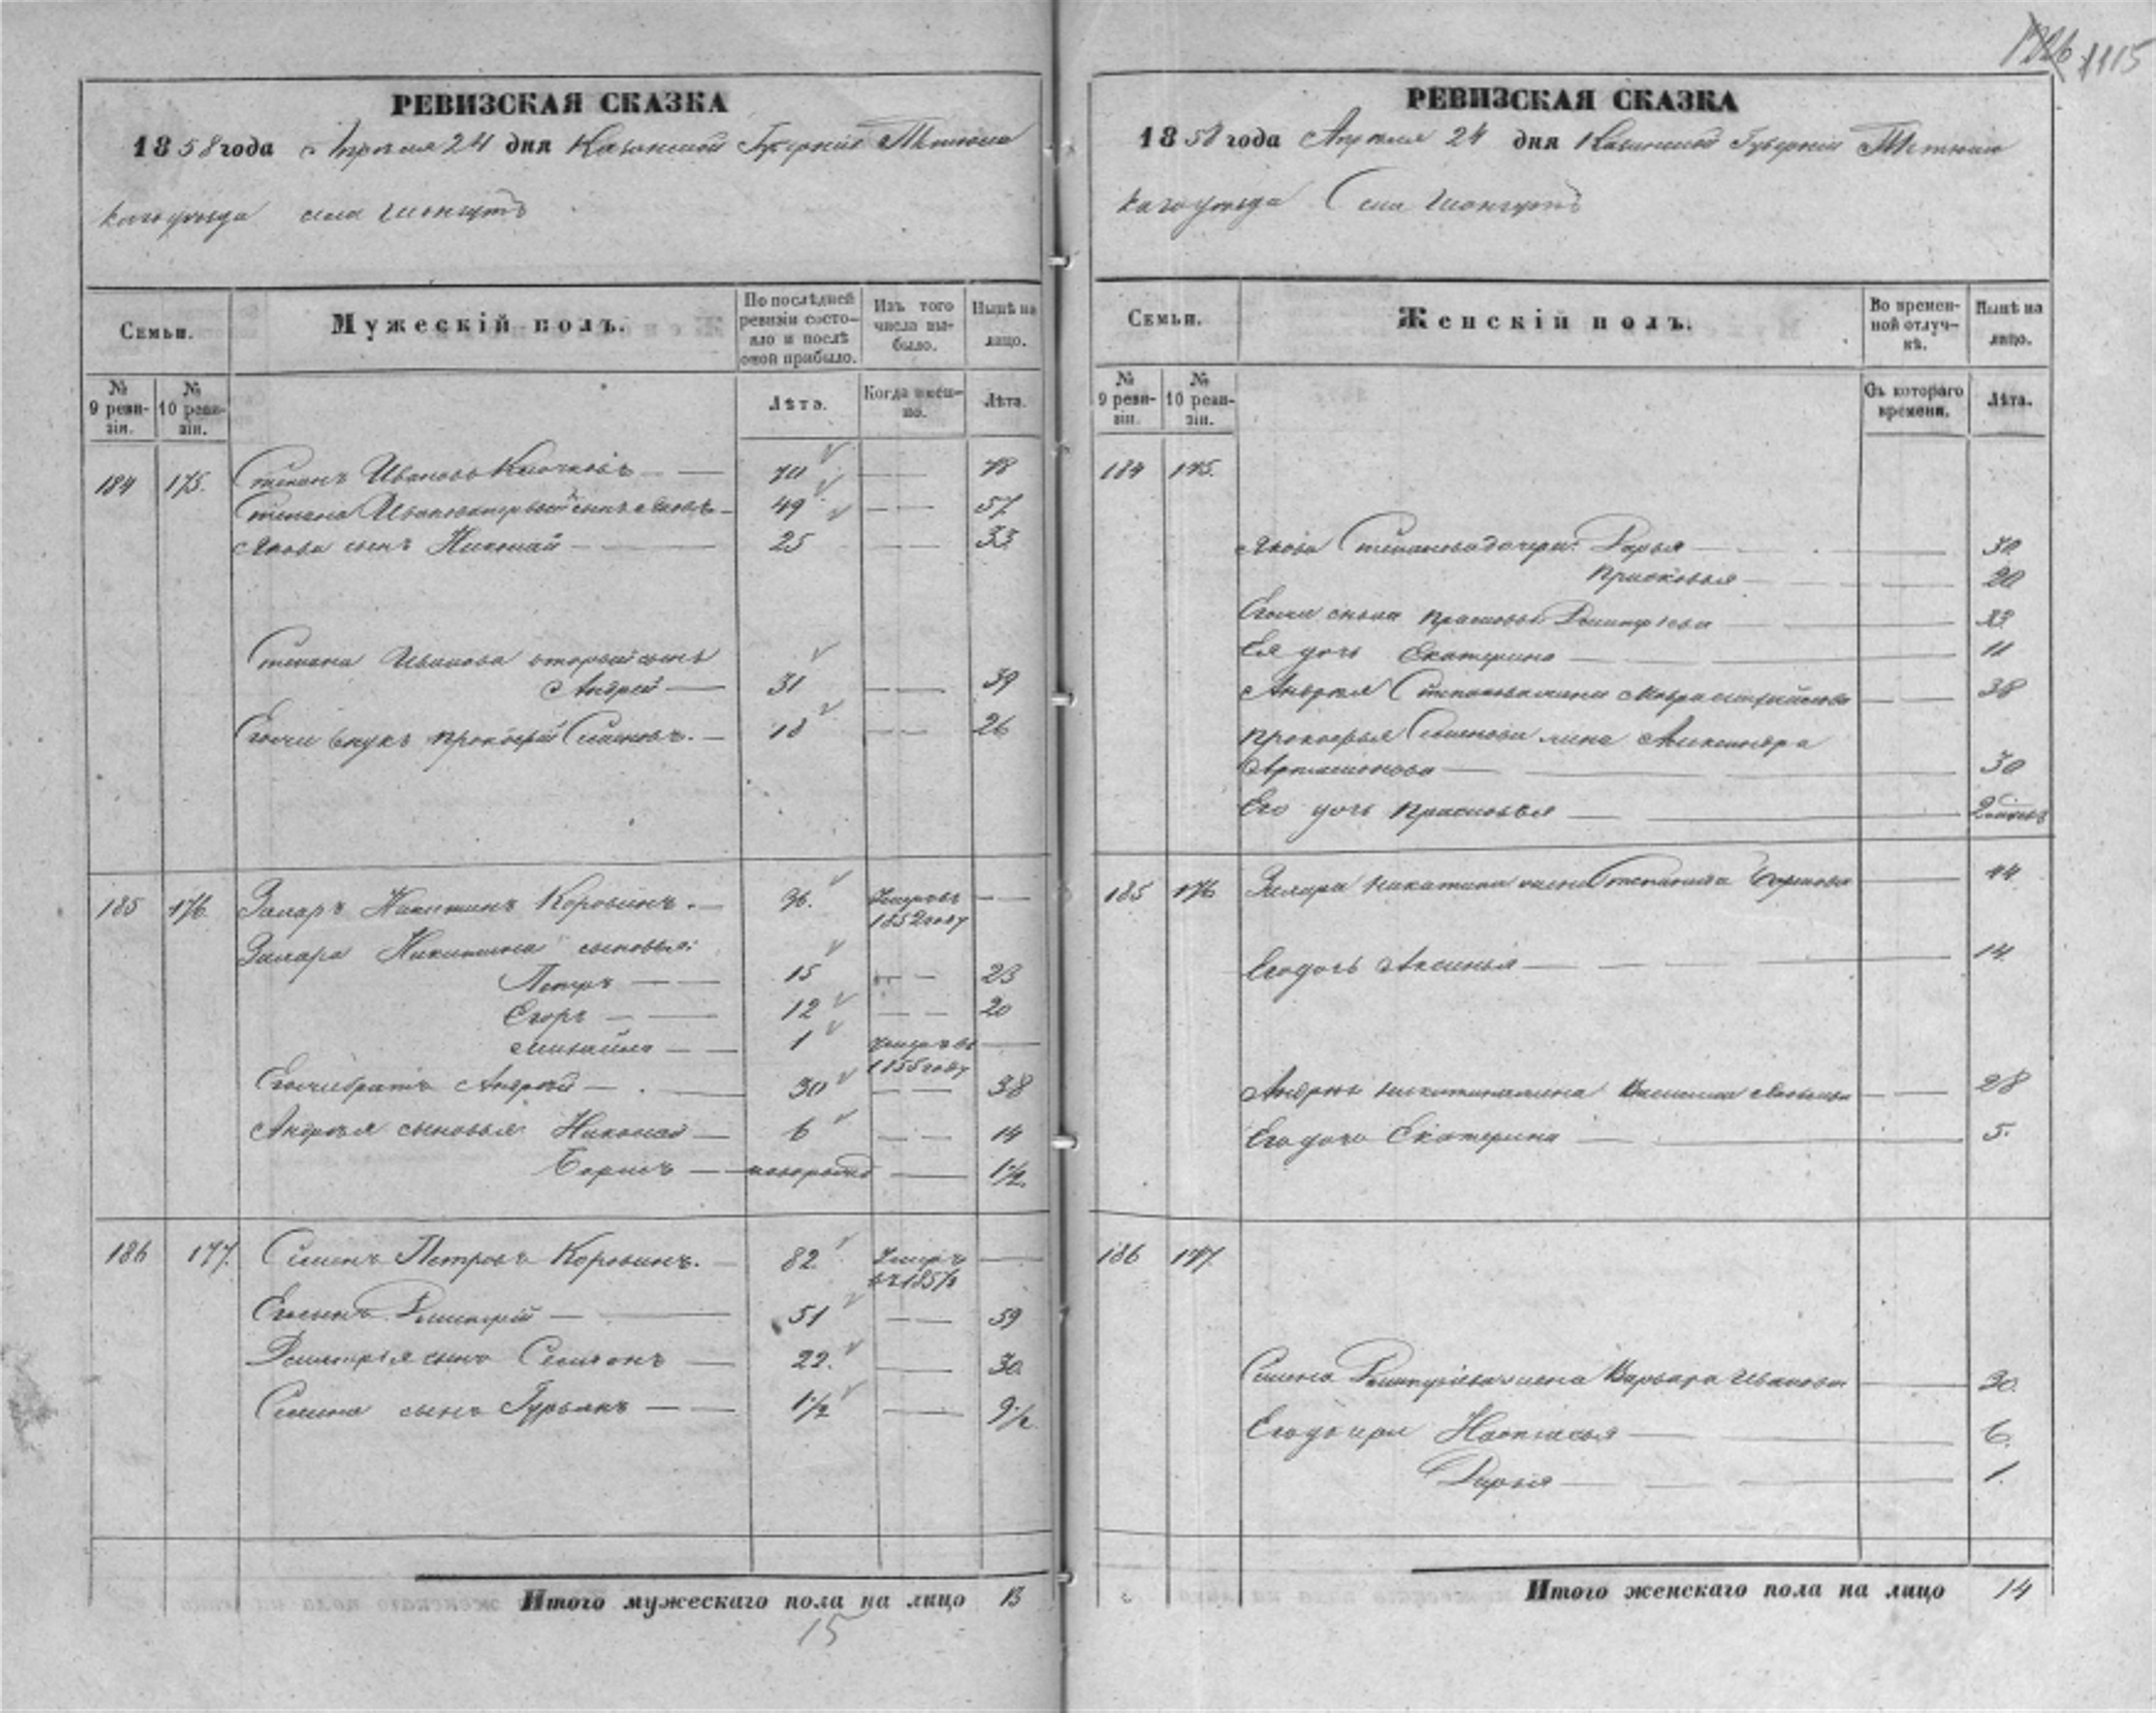 1115
РЕВИЗСКАЯ СКАЗКА
1858 года Апреля 24 дня Казанской Губерніи Тетюш
каго уезда села Шонгутъ
Семьи.
Мужескій полъ.
По послѣдней ревизіи состояло и послѣ оной прибыло.
Изъ того числа выбыло.
Нынѣ на лицо.
№ 9 ревизіи.
№ 10 ревизіи.
Лѣта.
Когда именно.
Лѣта.
184 175. Степанъ Ивановъ Клочковъ 70 78
Степана Иванова первый сынъ Яковъ 49 57
Якова сынъ Николай 25 33
Степана Иванова вторый сынъ
Андрей 31 39
Егоже внукъ Прокофій Семеновъ. 18 26
185 176 Захаръ Никитинъ Коровинъ. 36. Умеръ въ
1852 году
Захара Никитина сыновья:
Петръ 15 23
Егоръ 12 20
Михайла 1 Умеръ въ
1855 году
Егоже братъ Андрей 30 38
Андрея сыновья Николай 6 14
Борисъ 1 1/2
186 177. Семенъ Петровъ Коровинъ. 82 Умеръ
въ 185
Его сынъ Дмитрій 51 59
Дмитрія сынъ Семенъ 22. 30.
Семена сынъ Гурьянъ 1 1/2 9 1/2
Итого мужескаго пола на лицо 13
15
РЕВИЗСКАЯ СКАЗКА
1858 года Апреля 24 дня Казанской Губерніи Тетюш
каго уезда Села Шонгутъ
Семьи.
Женскій полъ.
Во временной отлучкѣ.
Нынѣ на лицо.
№ 9 ревизіи.
№ 10 ревизіи.
Съ котораго времени.
Лѣта.
184 175.
Якова Степанова дочери: Дарья 30
Прасковья 20
Егоже сноха Прасковья Дмитріева 33
Ея дочь Екатерина 11
Андрея Степанова жена Мавра 38
Прокофья Семенова жена Александра
Артамонова 30
Его дочь Прасковья 2
185 176 Захара Никитина жена Степанида 44
Его дочь Аксинья 14
Андрея Никитина жена 28
Его дочь Екатерина 5.
186 177.
Семена Дмитріева жена Варвара Иванова 30.
Его дочери Настасья 6.
Дарья 1.
Итого женскаго пола на лицо 14